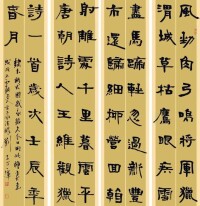 風勁角弓鳴將軍獵
渭城草枯鷹眼疾雪
盡馬蹄輕忽過新豐
市還歸細柳營回看
射雕處千里暮雲平
唐朝詩人王維觀獵
詩一首歲次壬辰
春月